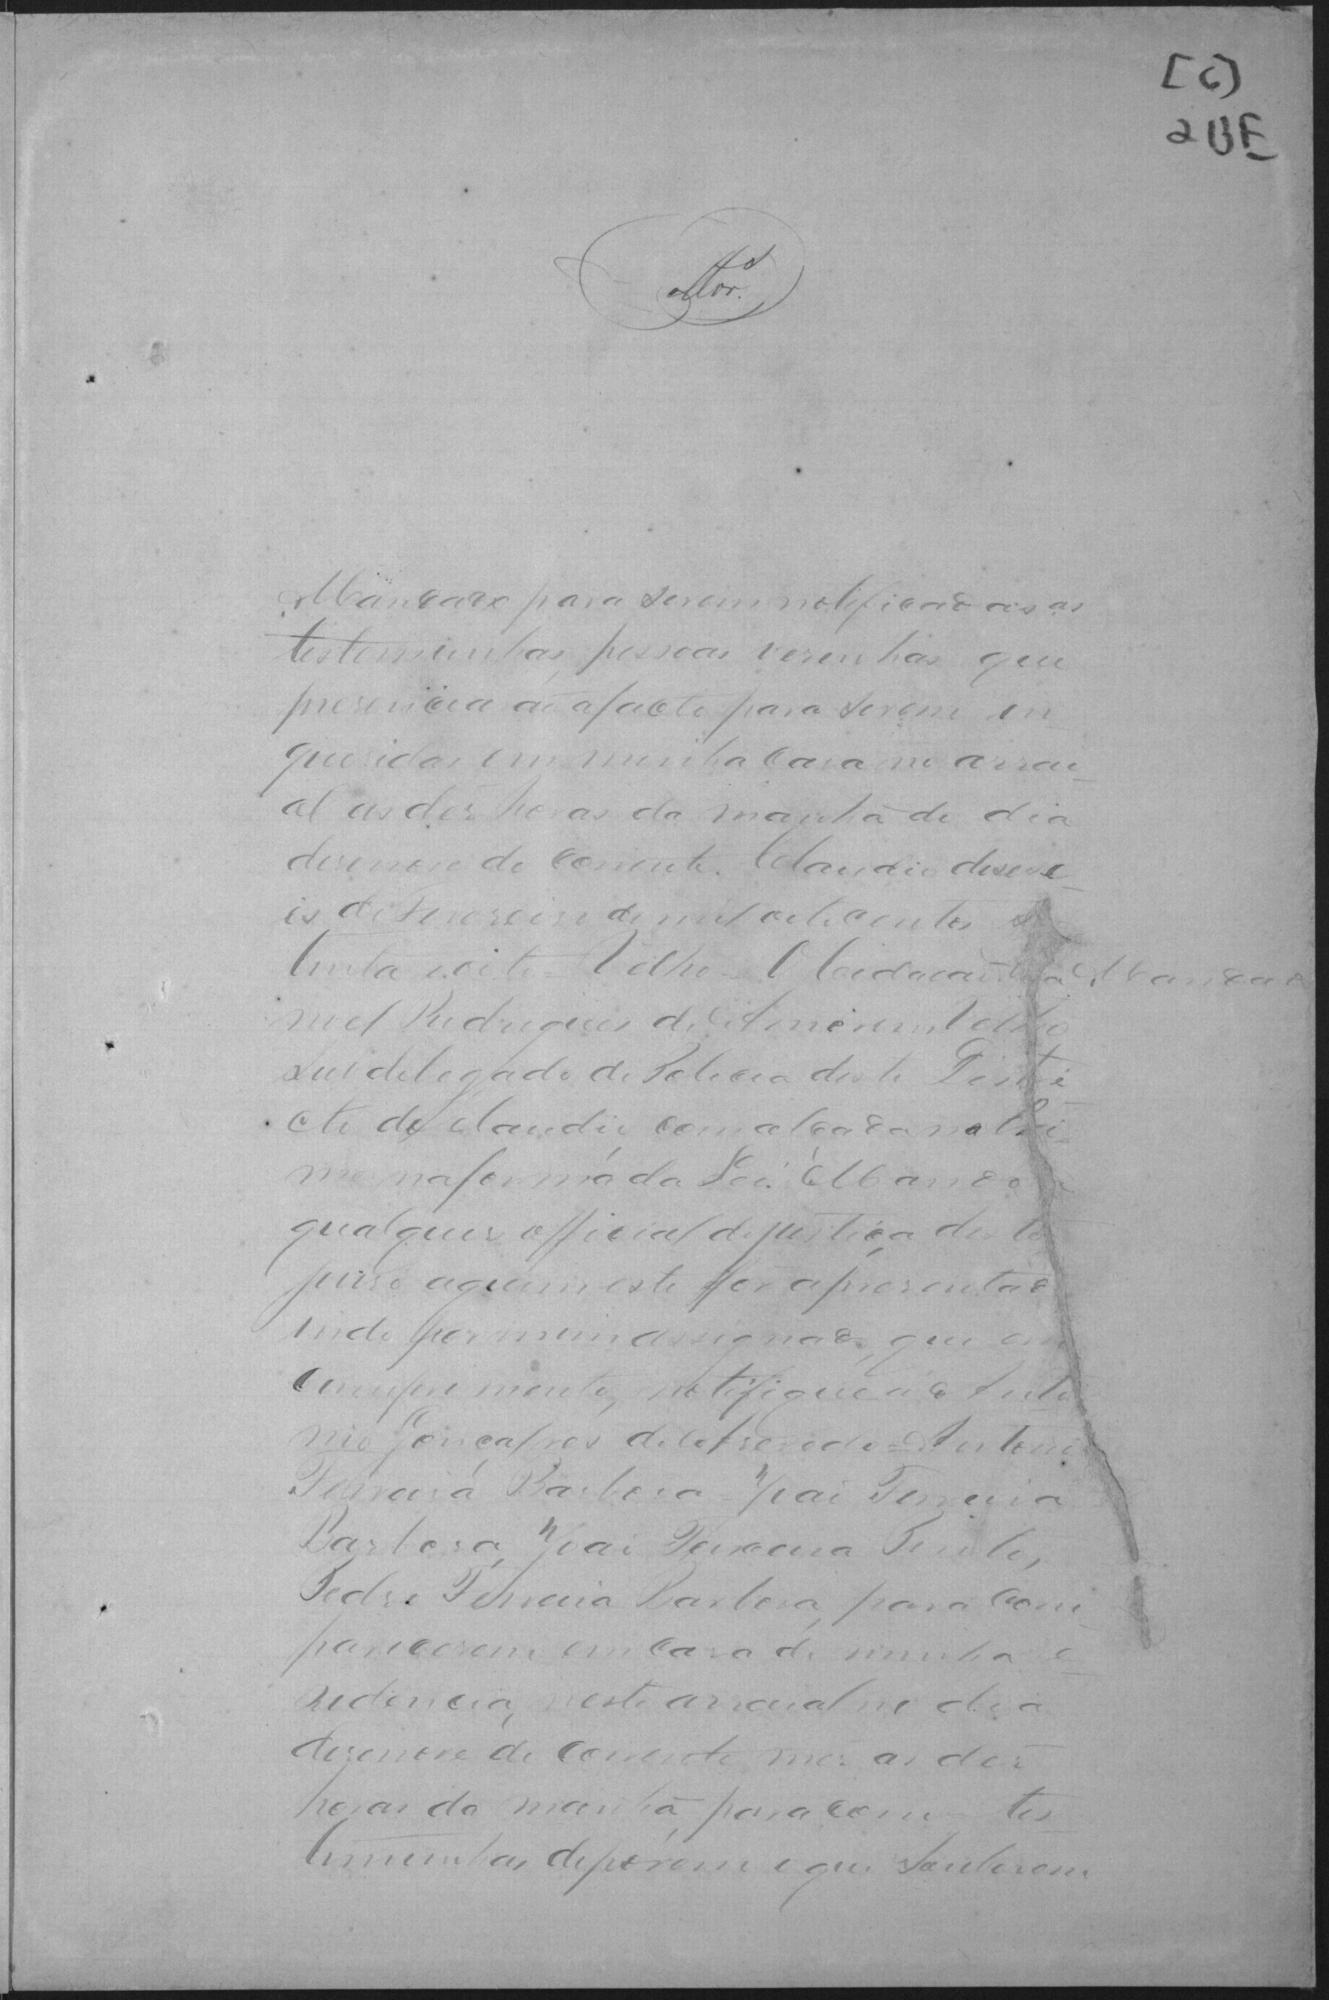 [6]
2BE
Mandado para serem notificadas as
testeminhas, pessoas vezinhas que
presenciarão a facto para serem in
queridas em minha casa no arrai
al as des horas da manhã do dia
desenove do corrente. Claudio desese
is de Fevereiro de mil oitocentos
trinta e oito = Velho = O Cidadão
Mandado
noel Rodrigues de Amorim Velho
Subdelegado de Policia deste Distri
cto do Claudio, com alçada no Cri
me na forma da Lei. Mando a
qualquer official de justiça deste
juiso a quem este for apresentado
indo por mim assignado, que em
comprimento, notifique a Anto
nio Gonçalves de Asevedo = Antonio
Ferreira Barbosa = Ferreira
Barbosa, Teixeira
Pedro Ferreira Barbosa, para com
parecerem em casa de minha re
sidencia, neste arraial no dia
desenove do corrente mes as des
horas da manhã, para com tes
timunhas deporem o que souberem